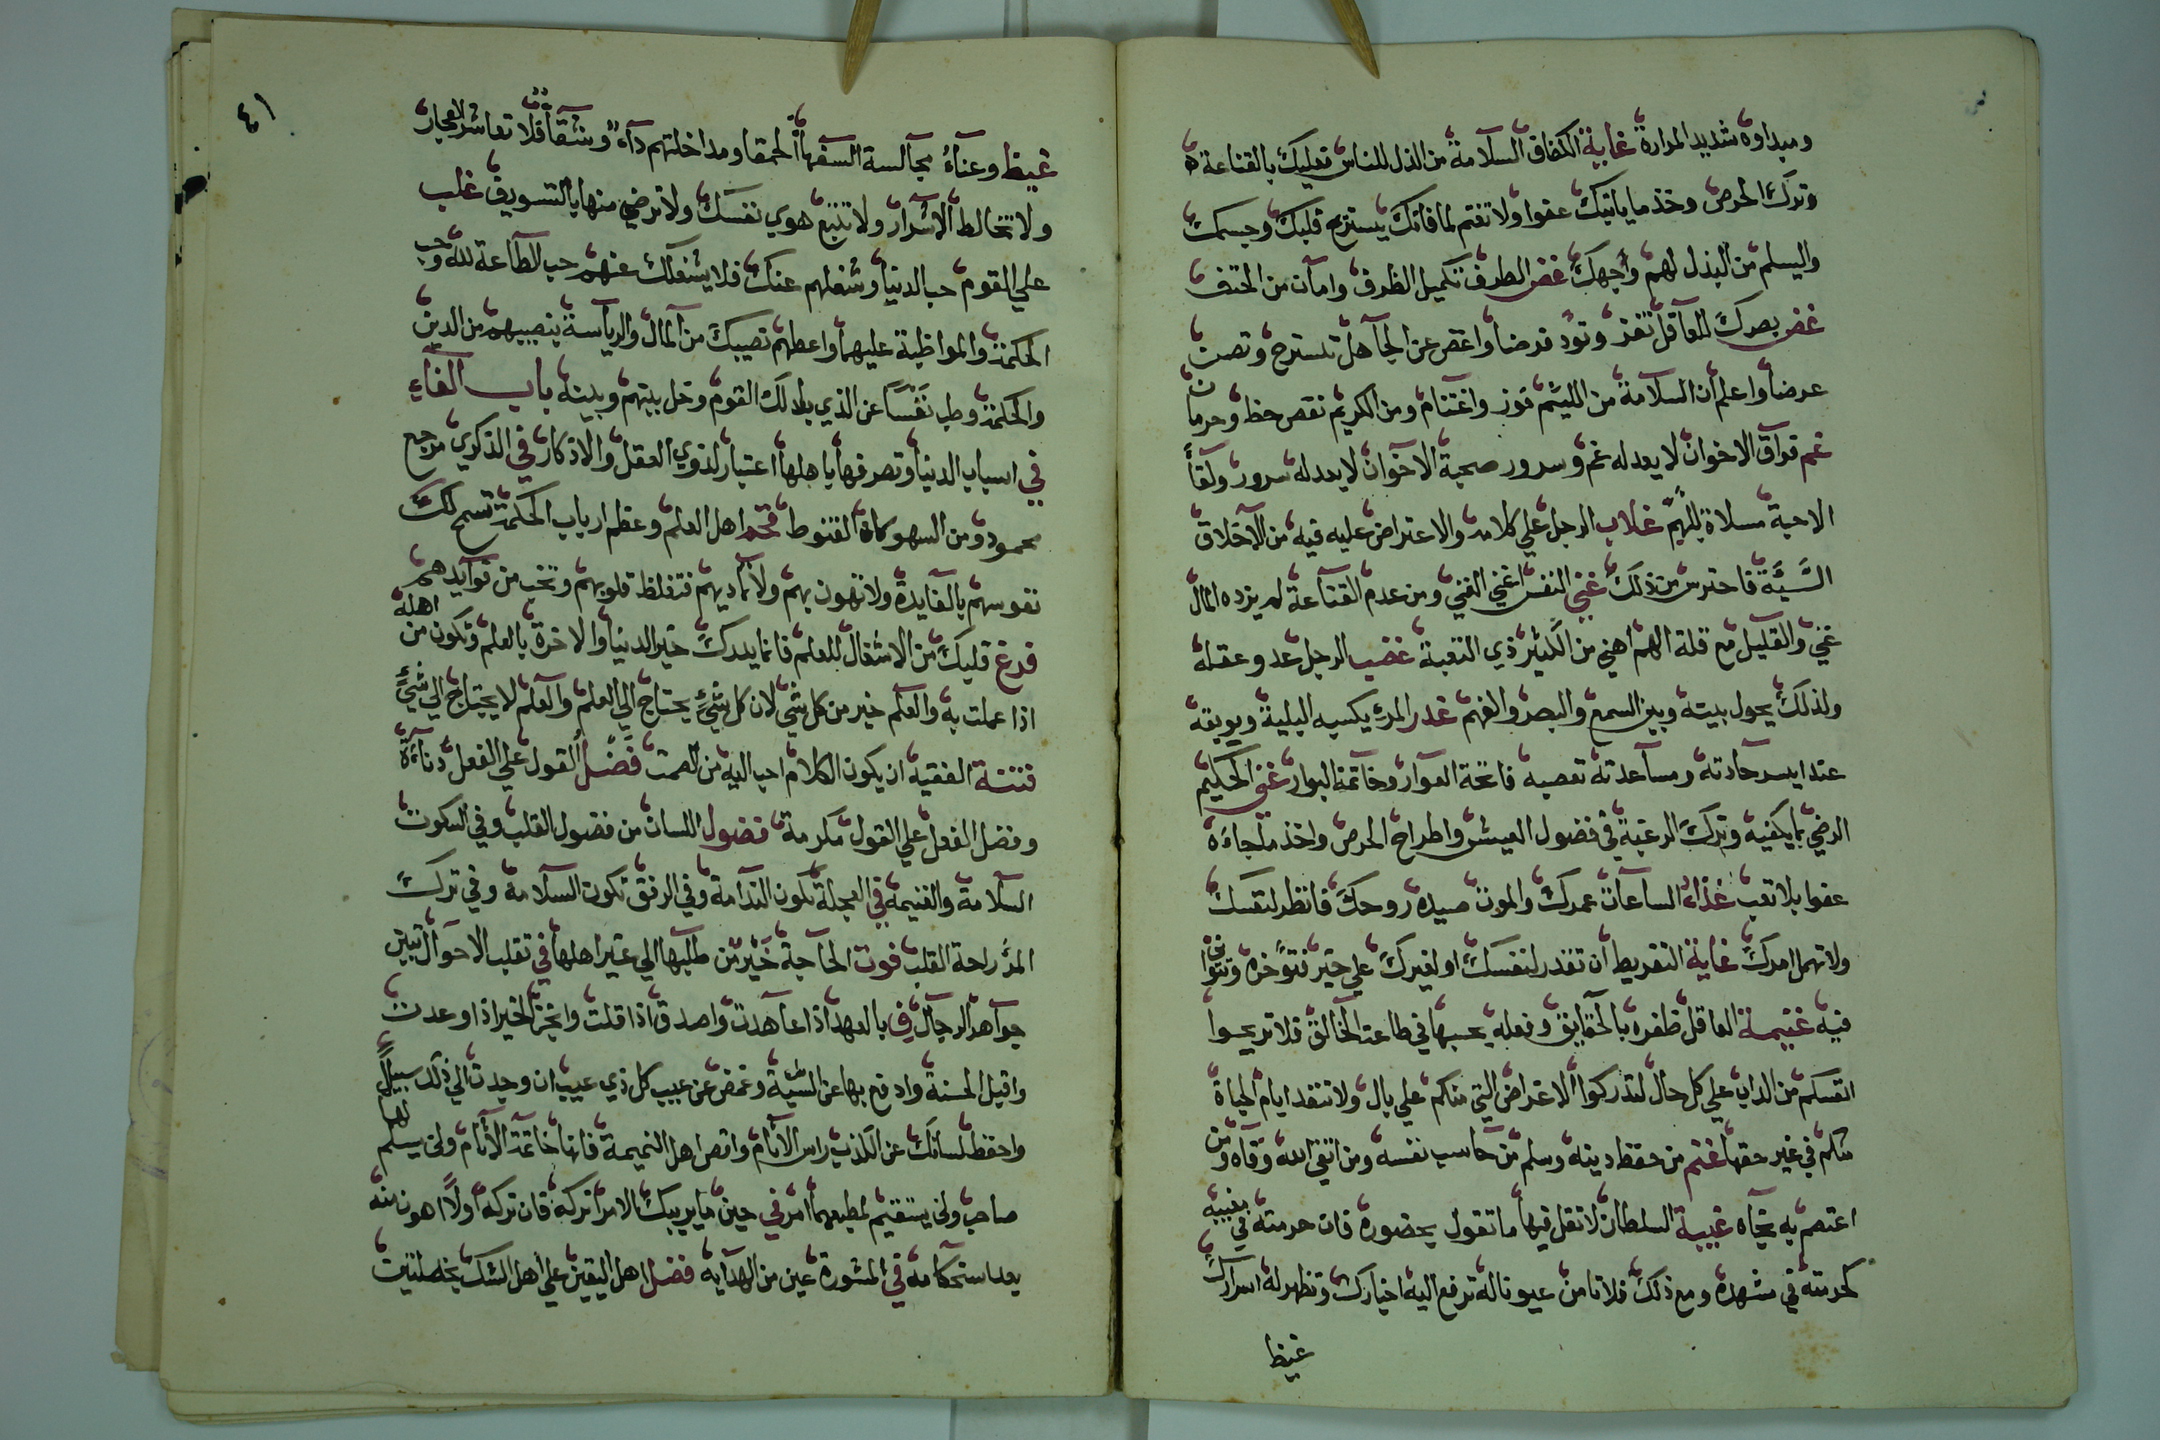 ومبداوه شديد المرارة غاية الكفاف السلامة من الذل للناس فعليك بالقناعة
وترك الحرص وخذ ما ياتيك عفوا ولا تغتم لما فاتك يستريح قلبك وجسمك
واليسلم من البذل لهم وجهك غض الطرف تكميل الظرف وامان من الحتف
غض بصرك للعاقل تفز وتود قرضا واغض عن الجاهل تسترح وتصن
عرضا واعلم ان السلامة من الليئم فوز واغتنام ومن الكريم نقص حظ وحرمان
غم فراق الاخوان لا يعدله غم وسرور صحبة الاخوان لا يعدله سرور ولقا
الاحبة مسلاة للهم غلاب الرجل علي كلامه والاعتراض عليه فيه من الاخلاق
السيئة فاحترس من ذلك غني النفس اغني الغني ومن عدم القناعة لم يزده المال
غني والقليل مع قلة الهم اهني من الكثير ذي التعبة غضب الرجل عدو عقله
ولذلك يحول بينه وبين السمع والبصر والفهم غدر المرء يكسبه البلية ويوبقه
عند ايسر حادثه ومساعدته تعصبه فاتحة العوار وخاتمة البوار غني الحكيم
الرضي بما يكفيه وترك الرغبة في فضول العيش واطراح الحرص واخذ ما جاءه
عفوا بلا تعب غذاء الساعات عمرك والموت صيده روحك فانظر لنفسك
ولا تهمل امرك غاية التفريط ان تقدر لنفسك او لغيرك علي خير فتوخره وتتواني
فيه غنيمة العاقل ظفره بالحقايق وفعله يحسبها في طاعت الخالق فلا تريحوا
انفسكم من الداب علي كل حال لتدركوا الاغراض التي منكم علي بال ولا تنفد ايام الحياة
منكم في غير حقها غنم من حفظ دينه وسلم من حاسب نفسه ومن اتقي الله وقاه ومن
اعتصم به نجاه غيبة السلطان لا تقل فيها ما تقول بحضوره فان حرمته في مغيبه
كحرمته في مشهده ومع ذلك فلا تامن عيونا له ترفع اليه اخبارك وتظهر له اسرارك
غيظ
٤١
غيظ وعناء مجالسة السفها الحمقا ومداخلتهم داء وشقا فلا تعاشر الفجار
ولا تخالط الاشرار ولا تتبع هوي نفسك ولا ترضي منها بالتسويف غلب
علي القوم حب الدنيا وشغلهم عنك فلا يشغلك عنهم حب الطاعة لله وحب
الحكمة والمواظبة عليهما واعطهم نصيبك من المال والرياسة بنصيبهم من الدين
والحكمة وطب نفسا عن الذي بذلك القوم وخل بينهم وبينه باب الفاء
في اسباب الدنيا وتصرفها باهلها اعتبار لذوي العقل والاذكار في الذكري مرجع
محمود ومن السهو كاف القنوط فخم اهل العلم وعظم ارباب الحكمة تسمح لك
نفوسهم بالفايدة ولا تتهون بهم ولا تماديهم فتغلظ قلوبهم وتخب من فوايدهم
فرغ قلبك من الاشغال للعلم فانما يدرك خير الدنيا والاخرة بالعلم وتكون من اهله
اذا عملت به والعلم خير من كل شي لان كل شيء يحتاج الي العلم والعلم لا يحتاج الي شيء
فتنة الفقيه ان يكون الكلام احب اليه من الصمت فضل القول علي الفعل دناءة
وفضل الفعل علي القول مكرمة فضول اللسان من فضول القلب وفي السكوت
السلامة والغنيمة في العجلة تكون الندامة وفي الرفق تكون السلامة وفي ترك
المرا راحة القلب فوت الحاجة خير من طلبها الي غير اهلها في تقلب الاحوال تبين
جواهر الرجال ف بالعهد اذا عاهدت واصدق اذا قلت وانجز الخير اذا وعدت
واقبل الحسنة وادفع بها عن السيئة وغمض عن عيب كل ذي عيب ان وجدت الي ذلك سبيلا
واحفظ لسانك عن الكذب راس الاثام واقص اهل النميمة فانها خاتمة الاثام ولن يسلم لهما
صاحب ولن يستقيم لمطيعهما امر في حين ما يريبك الامر اتركه فان تركه اولا اهون منه
بعد استحكامه في المشورة عين من الهدايه فضل اهل اليقين علي اهل الشك بخصلتين